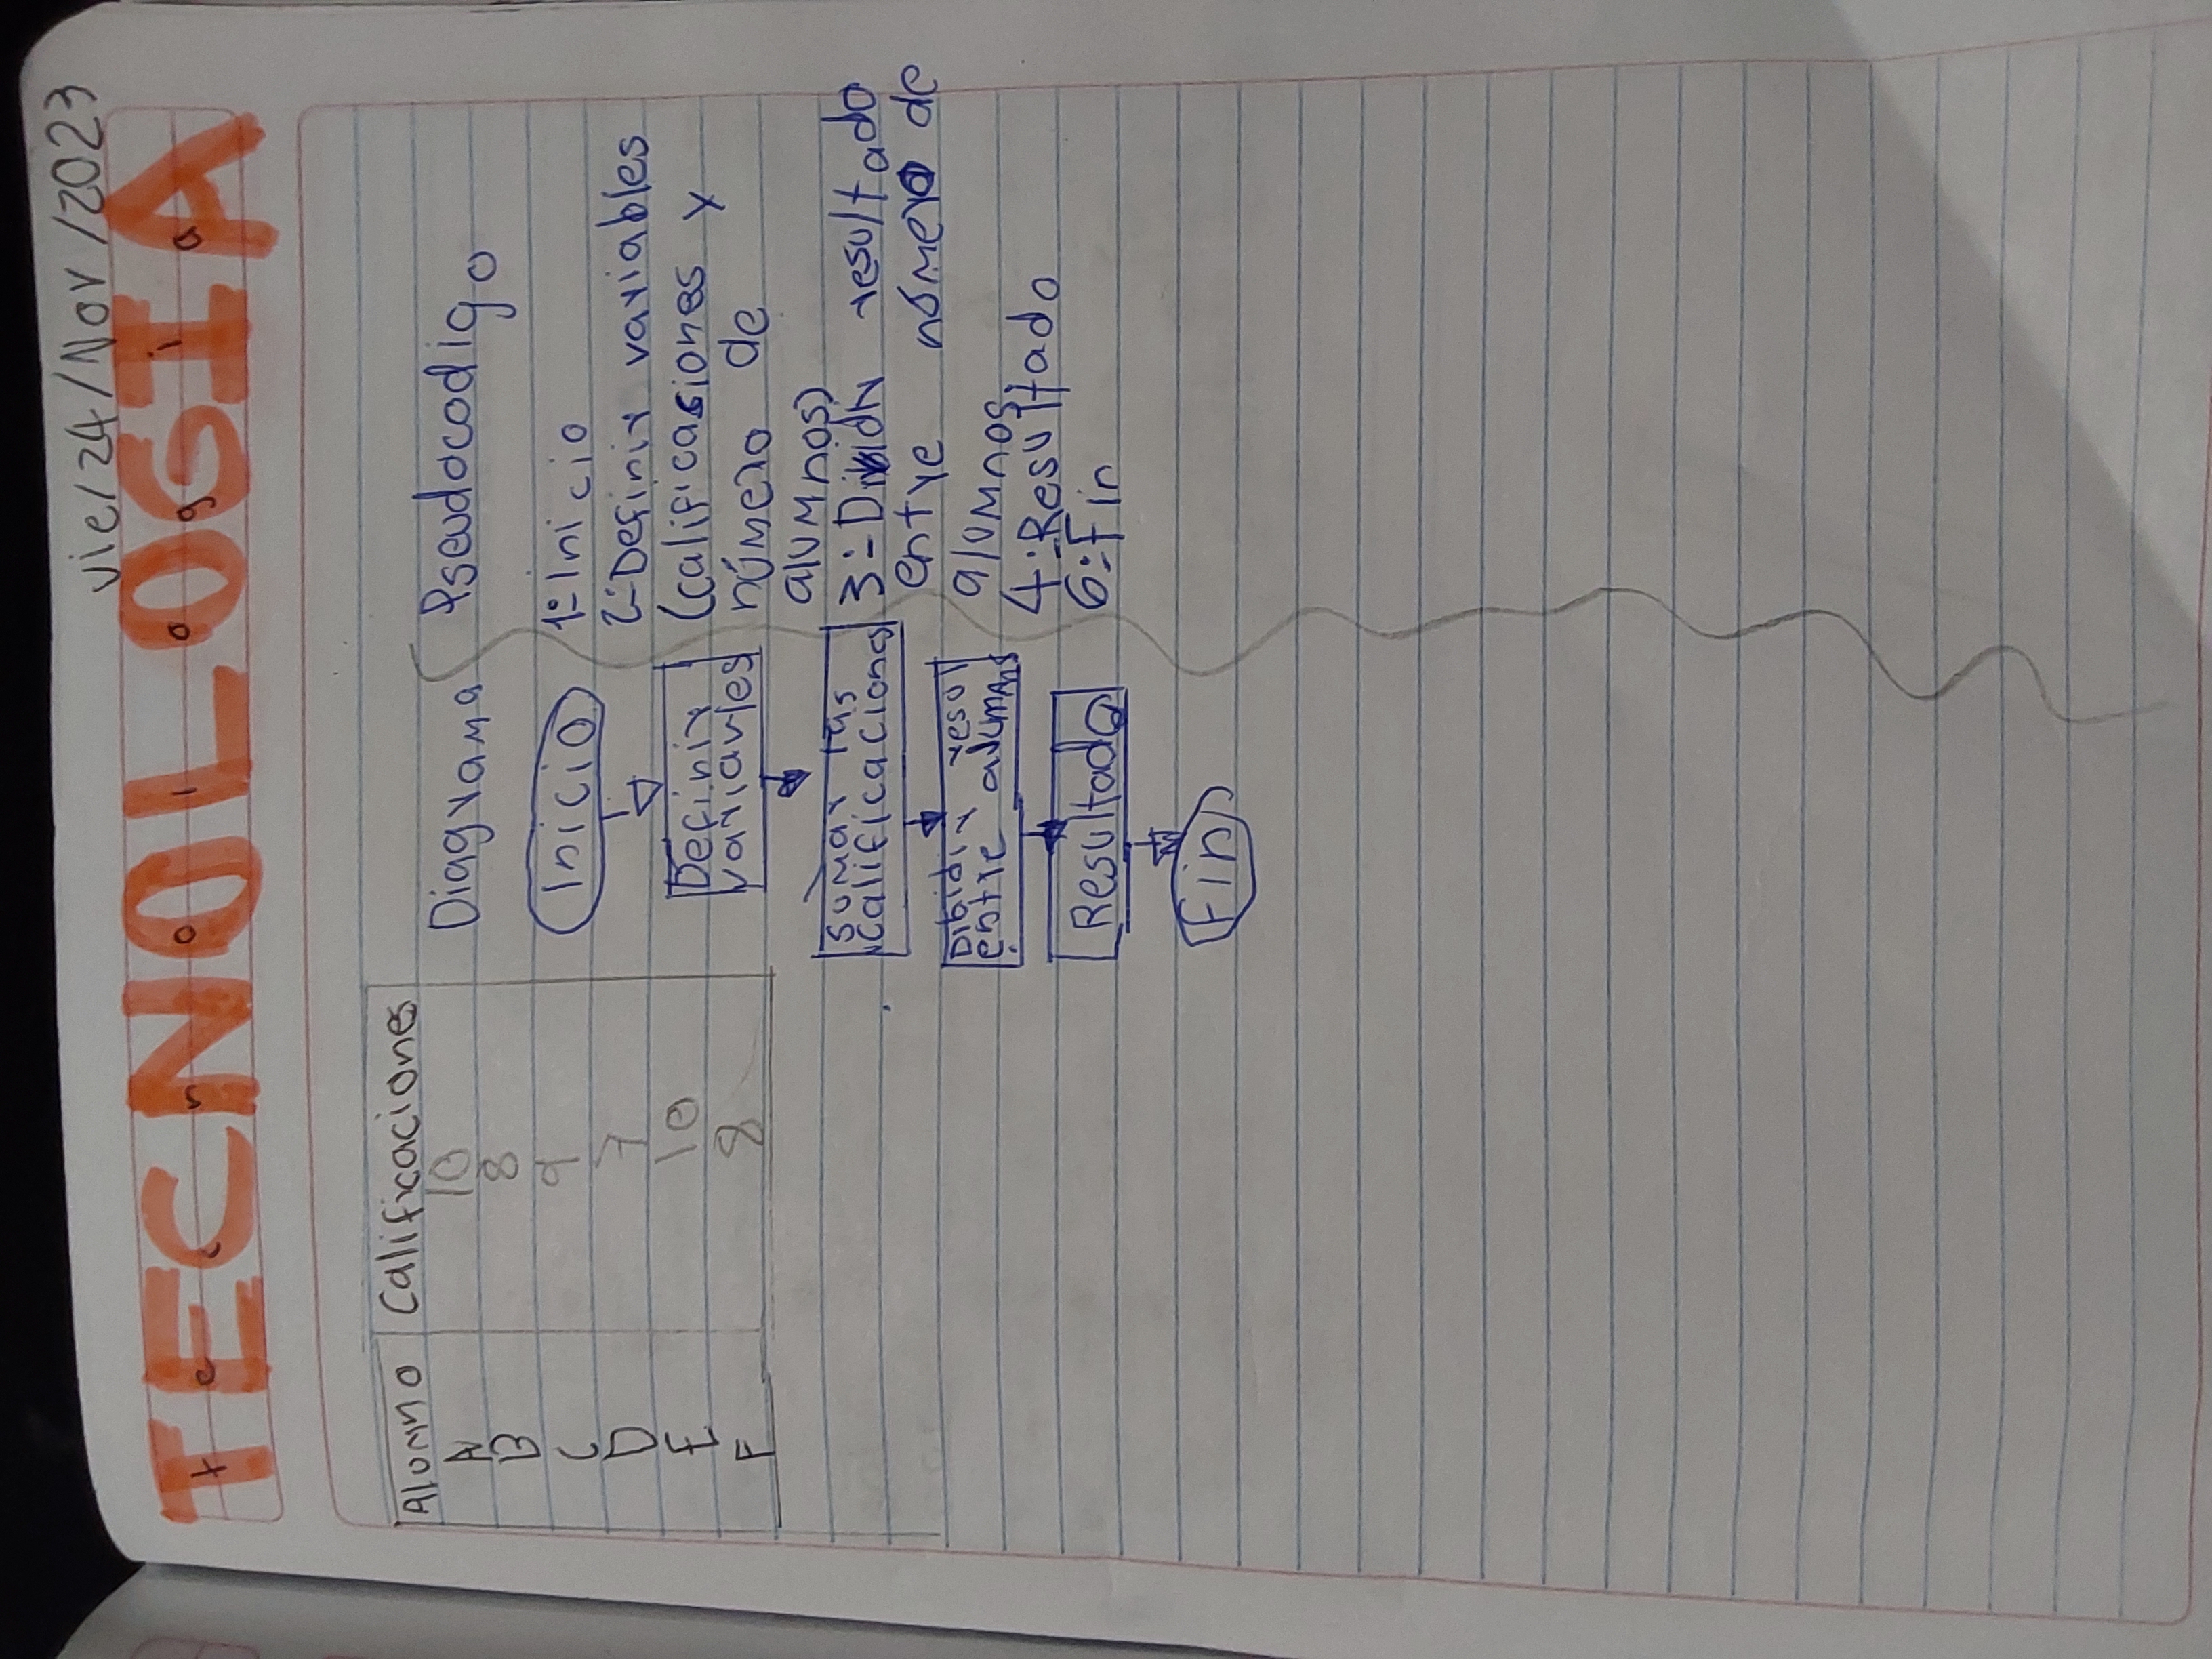 vie/24/Nov/2023
TECNOLOGIA
tecnologia
Alumno Calificaciones
A 10
B 8
C 9
D 7
E 10
F 8
Diagrama
Inicio
Definir
variavles
sumar las
calificaciones
Dibidir resul
entre alumnos
Resultado
Fin
Pseudocodigo
1:-Inicio
2:-Definir variables
(calificasiones y
número de
alumnos)
3:-Dividir resultado
entre número de
alumnos
4:-Resultado
6:-Fin